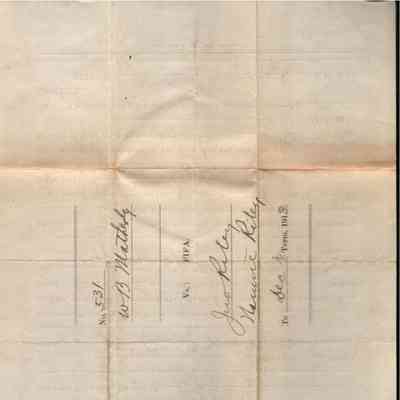 No. 531
W B Mathely
Vs. } FIFA.
Jno Riley
Nannie Riley
To Dec Term, 191